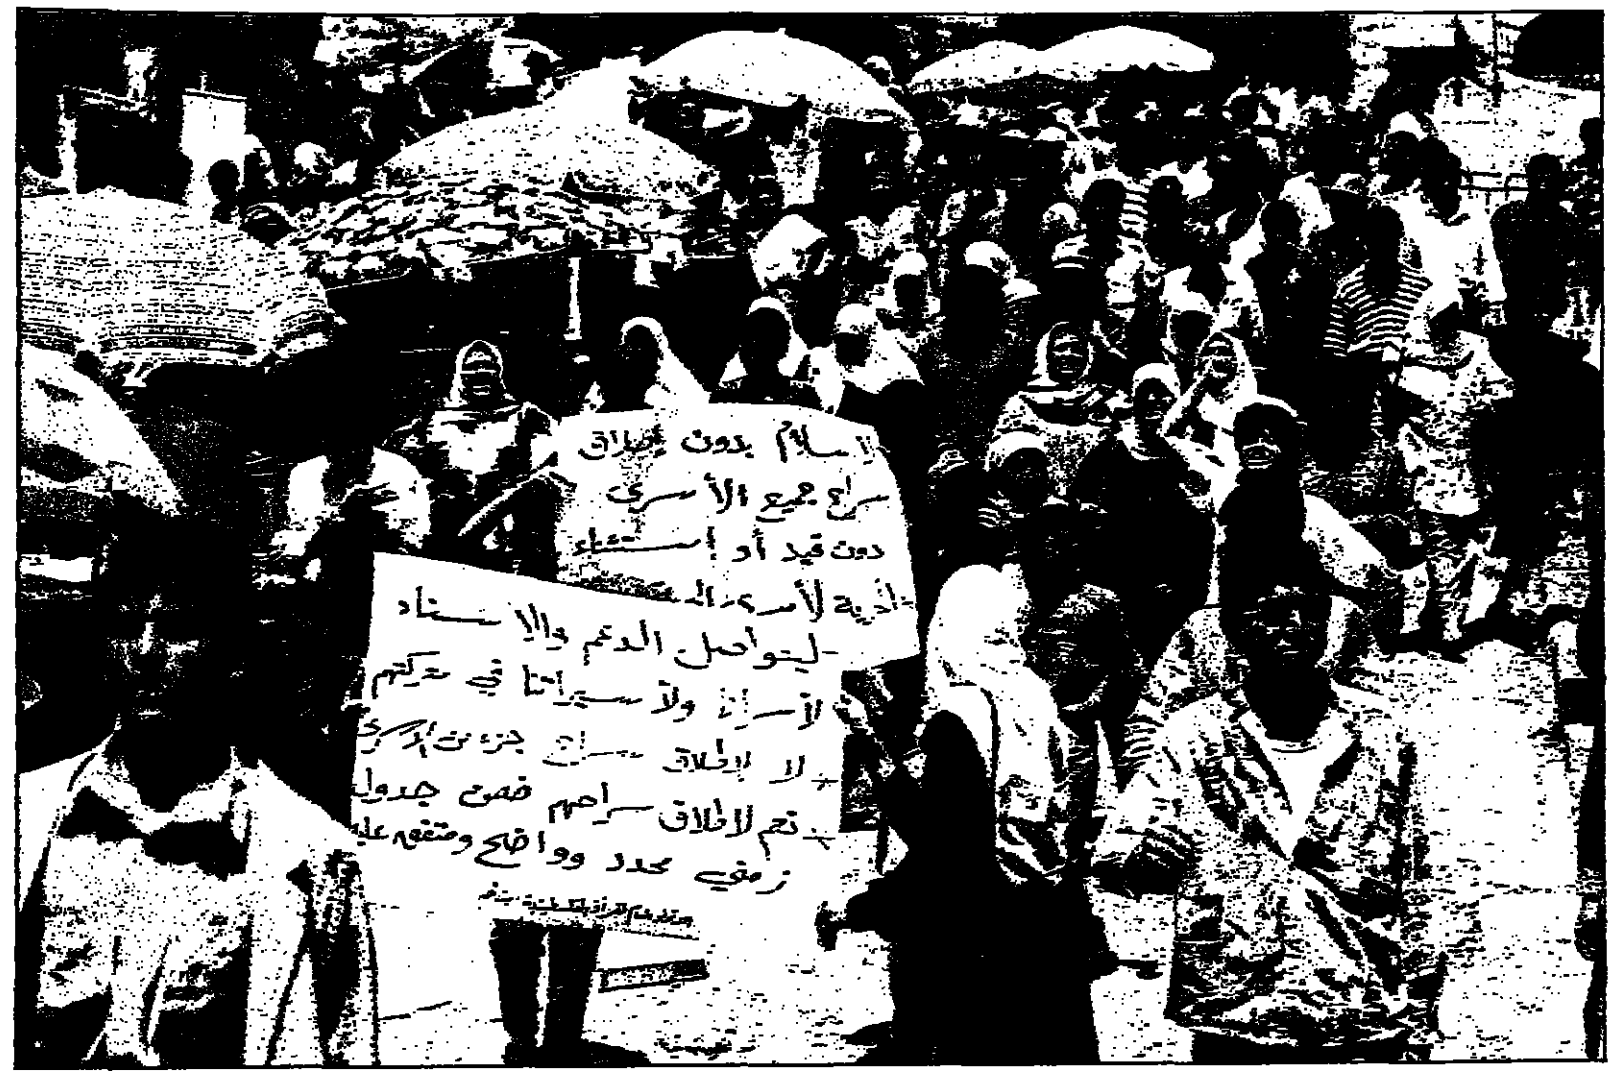 لا سلام بدون إطلاق
سراح جميع الأسرى
دون قيد أو إستثناء
لتواصل الدعم والإسناد
لأسرانا ولأسيراتنا في معركتهم
لا لإطلاق سراح جزء من الأسرى
نعم لاطلاق سراحهم ضمن جدول
زمني محدد وواضح ومتفق عليه